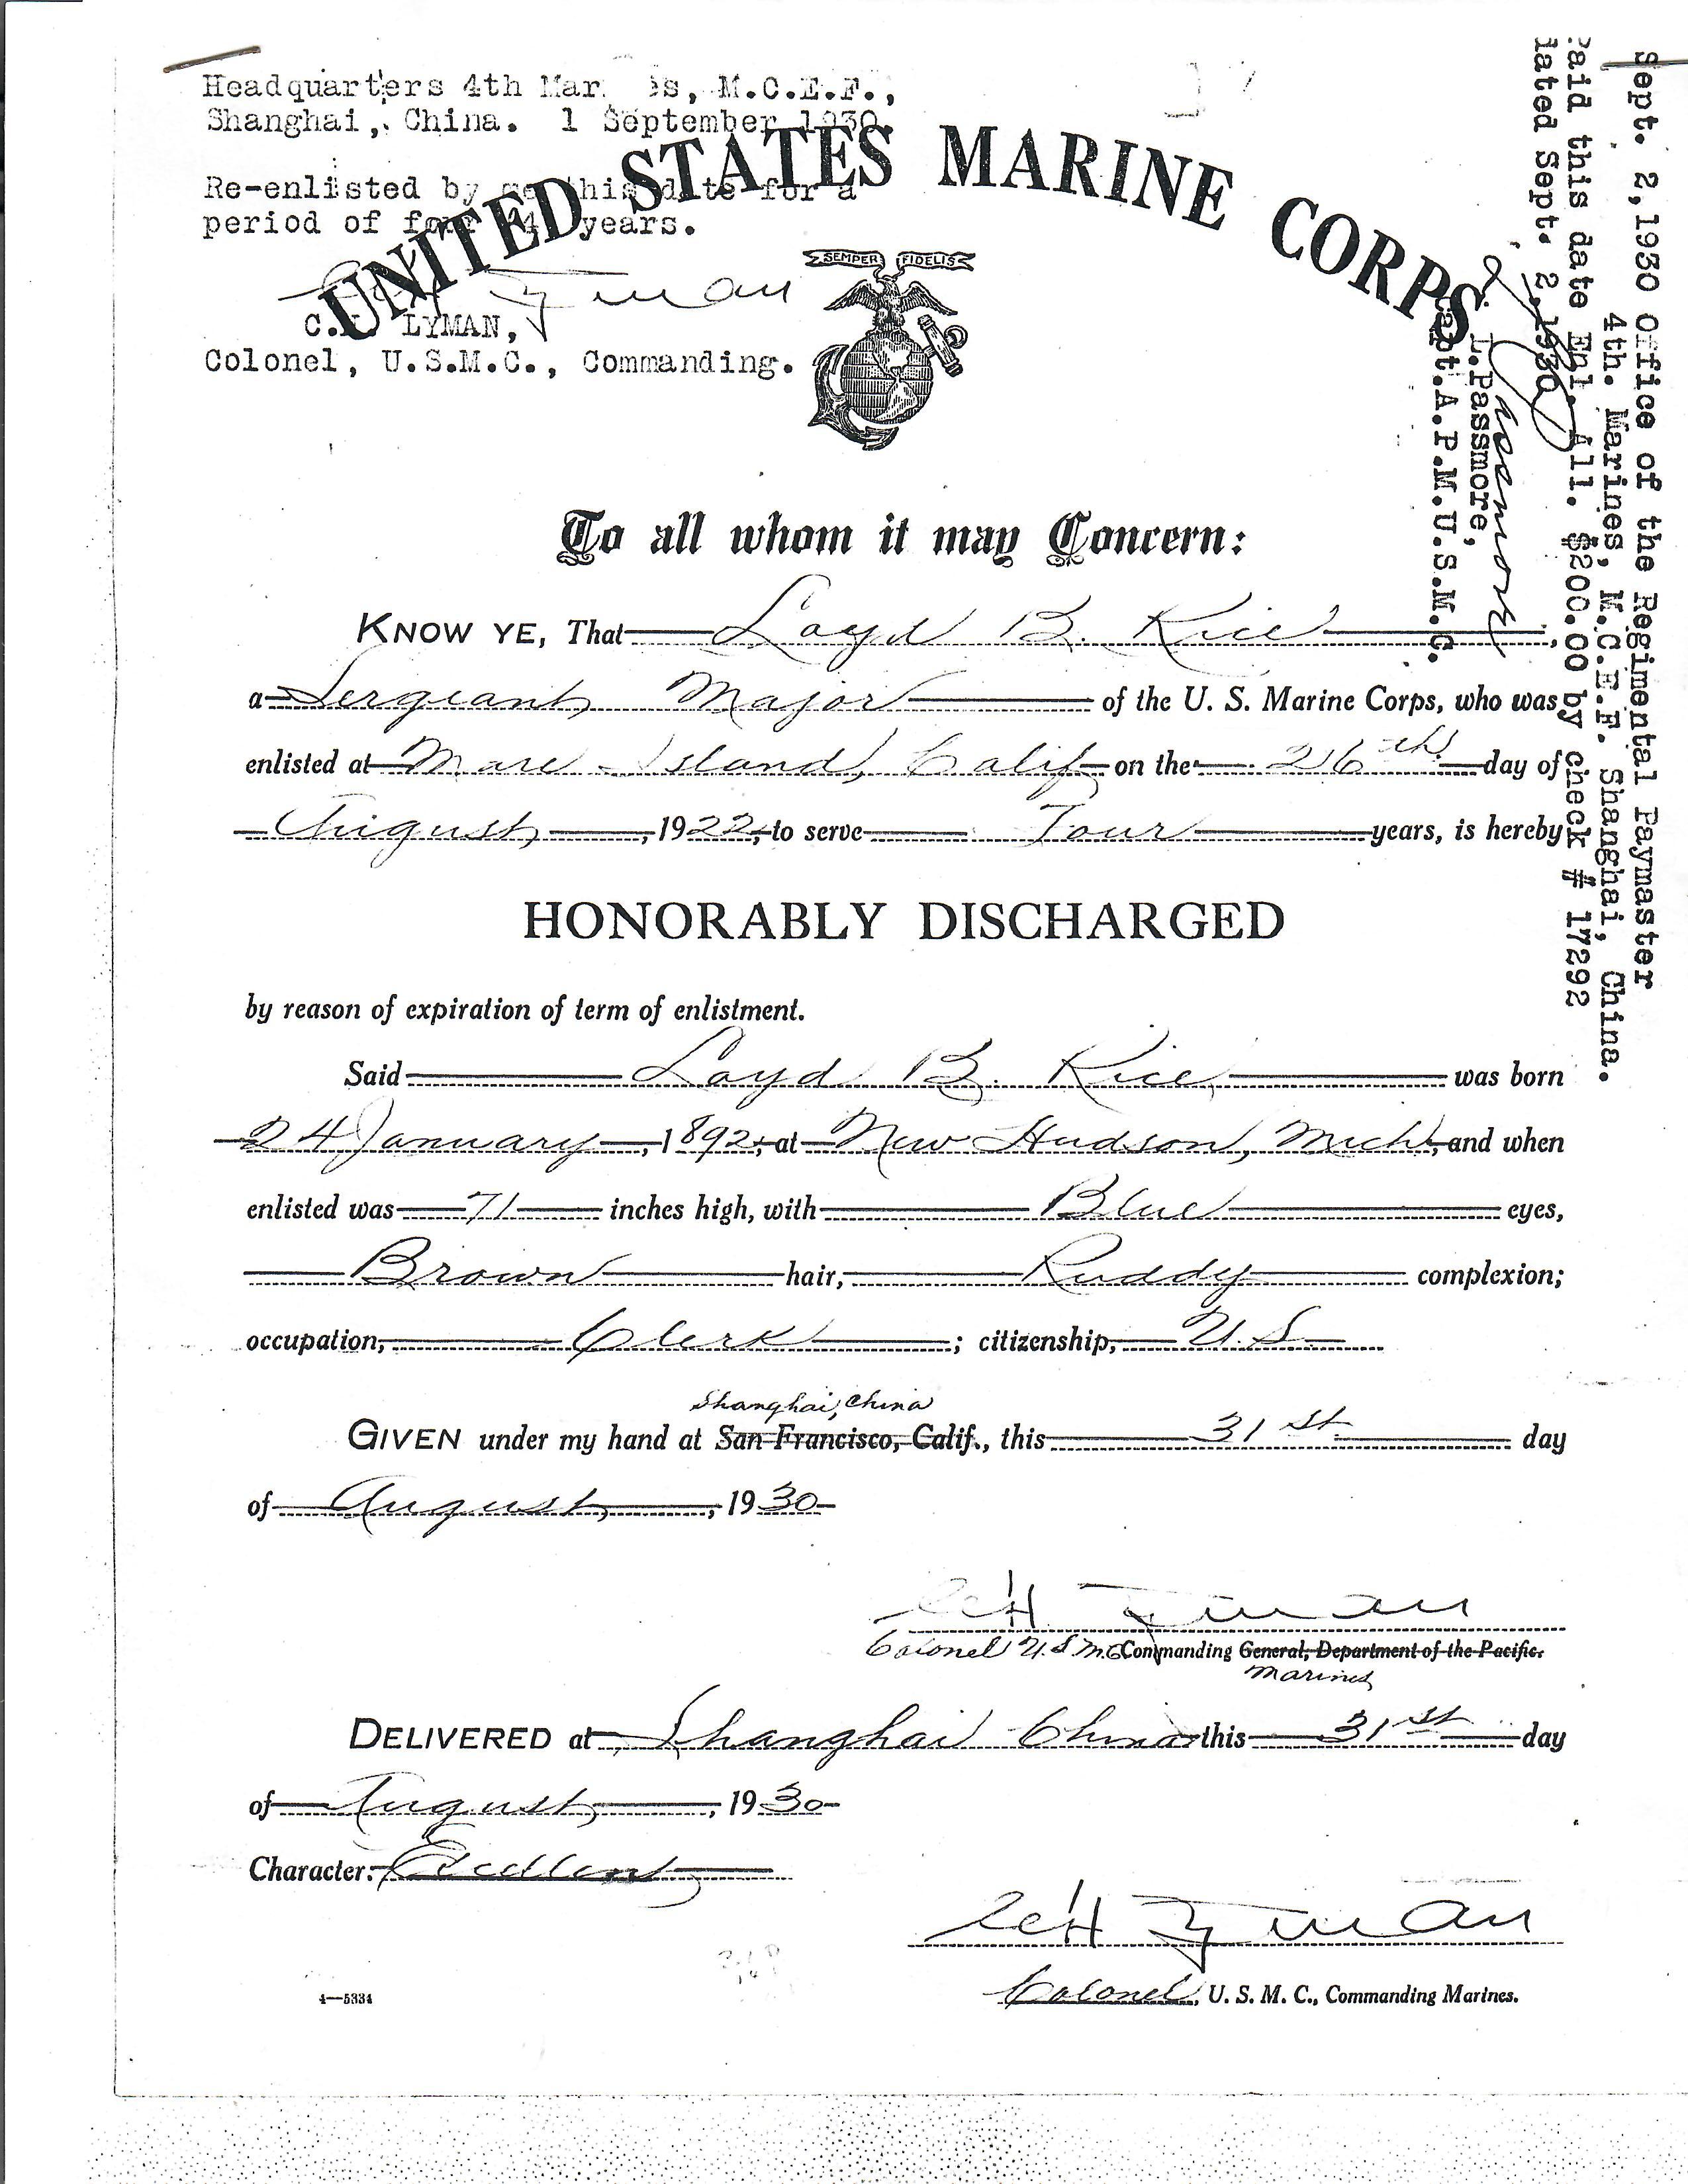 Headquarters 4th Mar es, M.C.E.F.,
Shanghai, China. 1 September 1930.
Re-enlisted by me this date for a
period of four (4) years.
C.H. Lyman
C.H. LYMAN,
Colonel, U.S.M.C., Commanding.
UNITED STATES MARINE CORPS
SEMPER FIDELIS
Sept. 2,1930 Office of the Regimental Paymaster
4th. Marines, M.C.E.F. Shanghai, China.
Paid this date Enl. All. $200.00 by check # 17292
dated Sept. 2,1930
L. Passmore
L. Passmore,
Capt.A.P.M.U.S.M.C.
To all whom it may Concern:
KNOW YE, That Loyd B. Rice,
a Sergeant Major of the U. S. Marine Corps, who was
enlisted at Mare Island, Calif on the 26th day of
August, 1922, to serve Four years, is hereby
HONORABLY DISCHARGED
by reason of expiration of term of enlistment.
Said Loyd B. Rice, was born
24 January, 1892, at New Hudson, Mich, and when
enlisted was 71 inches high, with Blue eyes,
Brown hair, Ruddy complexion;
occupation, Clerk; citizenship, U.S.
Shanghai, China
GIVEN under my hand at San Francisco, Calif., this 31st day
of August, 1930
C H Lyman
Colonel U.S.M.C. Commanding General, Department of the Pacific.
Marines
DELIVERED at Shanghai China this 31st day
of August, 1930
Character: Excellent
C H Lyman
Colonel, U. S. M. C., Commanding Marines.
4—5334